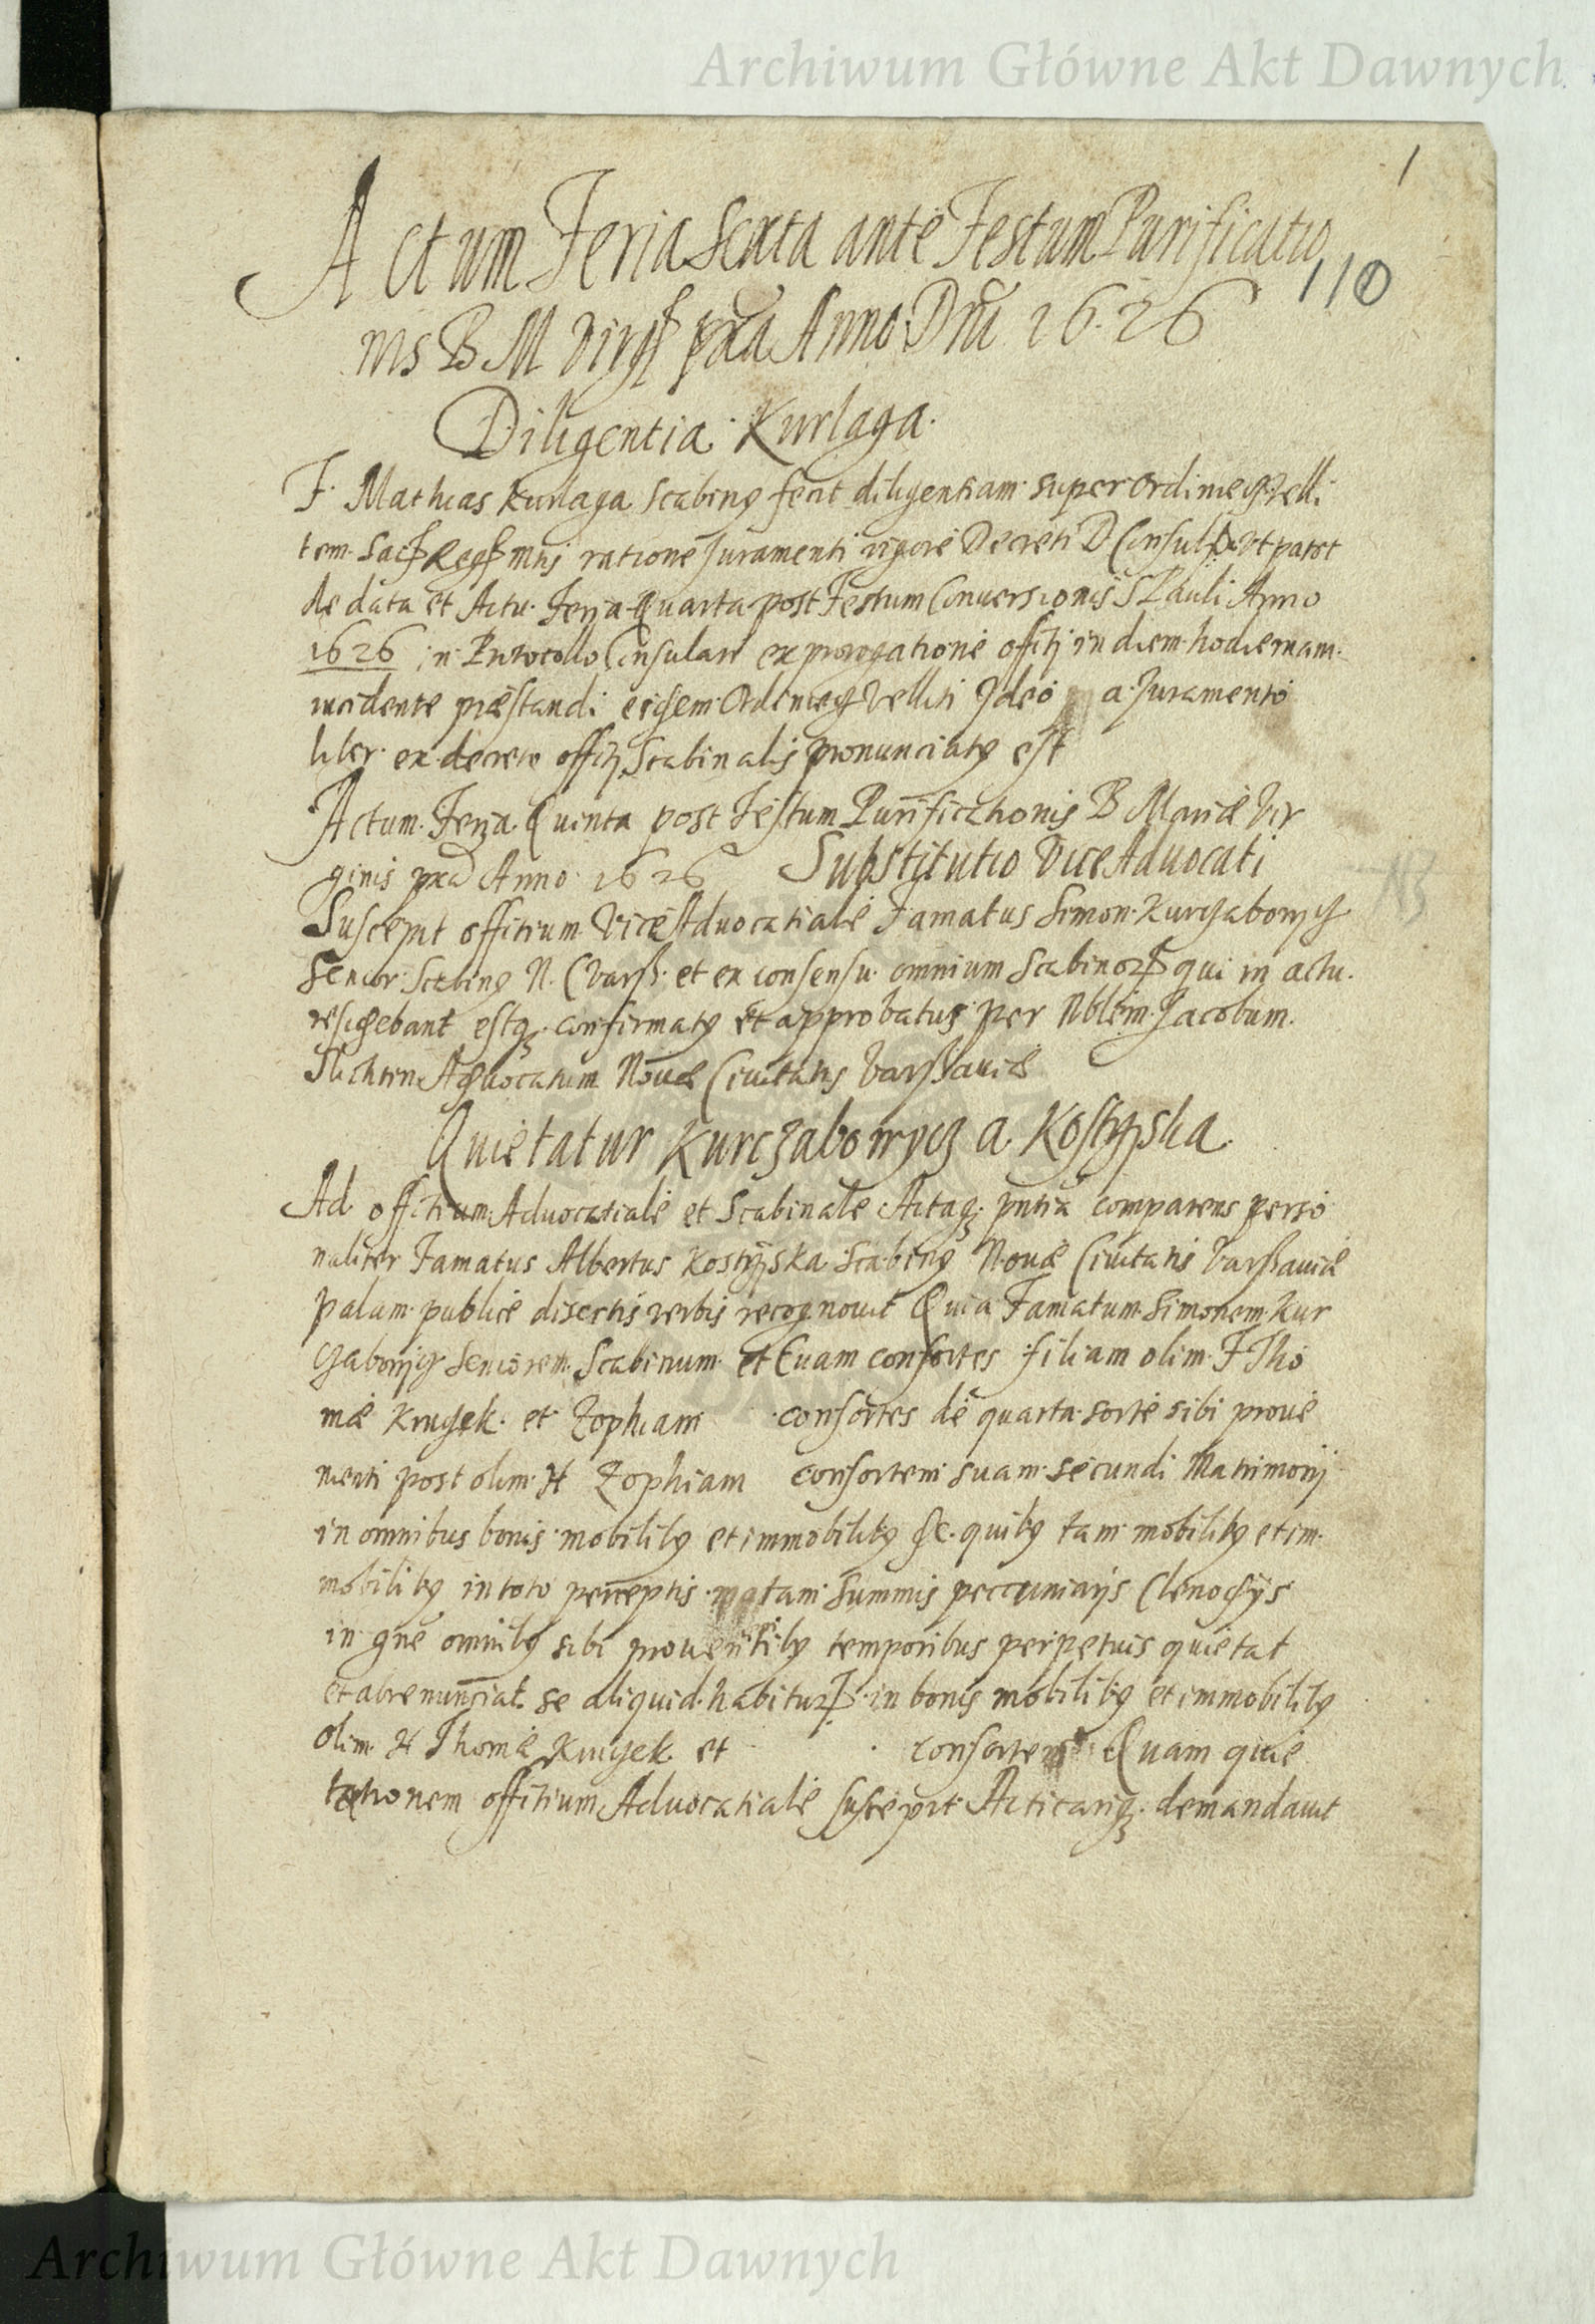 Archiwum Główne Akt Dawnych
1
Actum Feria Sexta ante Festum Purificatio
110
nis B M Virg pxa Anno Dni 1626
Diligentia Kurlaga
F. Mathias Kurlaga Scabinq fecit diligentiam super Ordineck Velli
tem Sac Reg Mtis ratione Juramenti vigore Decreti D Consul ut patet
de data et Actu Feria Quarta post Festum Conversionis S Pauli Anno
1626 in Protocollo Consulari ex prorogatione offitij in diem hodiernam
incidente præstandi eisdem Ordineck Velliti Ideo a Juramento
liber ex decreto offitij Scabinalis pronunciatq est
Actum Feria Quinta post Festum Purificationis B Mariæ Vir
ginis pxa Anno 1626 Substitutio ViceAdvocati
Suscepit offitium ViceAdvocatiale Famatus Simon Kurczabowycz
Senior Scabinq N. C Varß. et ex consensu omnium Scabinor qui in actu
residebant estq confirmatq et approbatus per Nblem Jacobum
Advocatum Novæ Civitatis Varßaviæ
Quietatur Kurczabowycz a Kostyska
Ad offitium Advocatiale et Scabinale Actaq pntia comparens perso
naliter Famatus Albertus Kostyska Scabinq Novæ Civitatis Varßaviæ
palam publice disertis verbis recognovit Quia Famatum Simonem Kur
czabowycz Seniorem Scabinum et Evam consortes filiam olim F Tho
mæ Kruczek et Zophiam consortes de quarta sorte sibi prove
nienti post olim H Zophiam consortem suam secundi Matrimonij
in omnibus bonis mobilibq et immobilibq de quibq tam mobilibq et im
mobilibq in toto perceptis tam summis peccuniarijs Clenodijs
in gne omnibq sibi provenientibq temporibus perpetuis quietat
et abrenunciat se aliquid habitur in bonis mobilibq et immobilibq
olim H Thomæ Kruczek et consortem Quam quie
tationem offitium Advocatiale suscepit Acticariq demandavit
Archiwum Główne Akt Dawnych